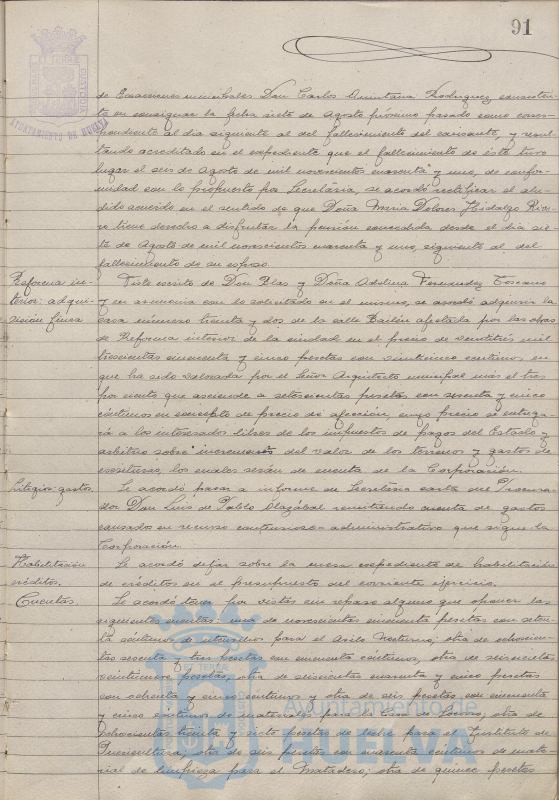 91
AYUNTAMIENTO DE HUELVA
de Exacciones municipales Don Carlos Quintana Rodríguez consisten-
te en consignar la fecha siete de Agosto próximo pasado como corres-
pondiente al dia siguiente al del fallecimiento del causante, y resul-
tando acreditado en el expediente que el fallecimiento de éste tuvo
lugar el seis de Agosto de mil novecientos cuarenta y uno, de confor-
midad con lo propuesto por Secretaría, se acordó rectificar el alu-
dido acuerdo en el sentido de que Doña Maria Dolores Hidalgo Rive-
ro tiene derecho a disfrutar la pensión concedida desde el dia sie-
te de Agosto de mil novecientos cuarenta y uno, siguiente al del
fallecimiento de su esposo.
Reforma in-
terior: adqui-
sición finca
Visto escrito de Don Blas y Doña Adelina Fernandez Toscano
y en armonia con lo solicitado en el mismo, se acordó adquirir la
casa número treinta y dos de la calle Bailén afectada por las obras
de Reforma interior de la ciudad en el precio de veintitrés mil
trescientas cincuenta y cinco pesetas con veinticinco centimos en
que ha sido valorada por el Señor Arquitecto municipal más el tres
por ciento que asciende a setecientas pesetas con sesenta y cinco
céntimos en concepto de precio de afección, cuyo precio se entrega-
rá a los interesados libres de los impuestos de pagos del Estado y
arbitrio sobre incremento del valor de los terrenos y gastos de
escrituras, los cuales serán de cuenta de la Corporación.
Litigios: gastos.
Se acordó pasar a informe de Secretaría carta del Procura-
dor Don Luis de Pablo Olazábal remitiendo cuenta de gastos
causados en recurso contencioso-administrativo que sigue la
Corporación.
Habilitación
créditos.
Se acordó dejar sobre la mesa expediente de habilitación
de créditos en el presupuesto del corriente ejercicio.
Cuentas.
Se acordó tener por vistas sin reparo alguno que oponer las
siguientes cuentas: una de novecientas cincuenta pesetas con seten-
ta céntimos de utensilios para el Asilo Nocturno; otra de ochocien-
tas sesenta y tres pesetas con cincuenta céntimos, otra de seiscientas
veintinueve pesetas, otra de seiscientas cuarenta y cinco pesetas
con ochenta y cinco centimos y otra de seis pesetas con cincuenta
y cinco céntimos de materiales para la Casa de Socorro; otra de
ochocientas treinta y siete pesetas de leche para el Instituto de
Puericultura; otra de seis pesetas con cuarenta céntimos de mate-
rial de limpieza para el Matadero; otra de quince pesetas
Ayuntamiento de
HUELVA